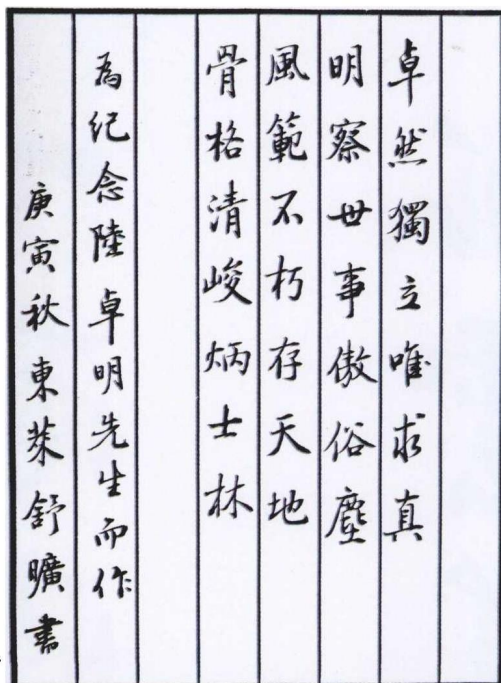 卓然獨立唯求真
明察世事傲俗塵
風範不朽存天地
骨格清峻炳士林
為紀念陸卓明先生而作
庚寅秋東萊舒曠書